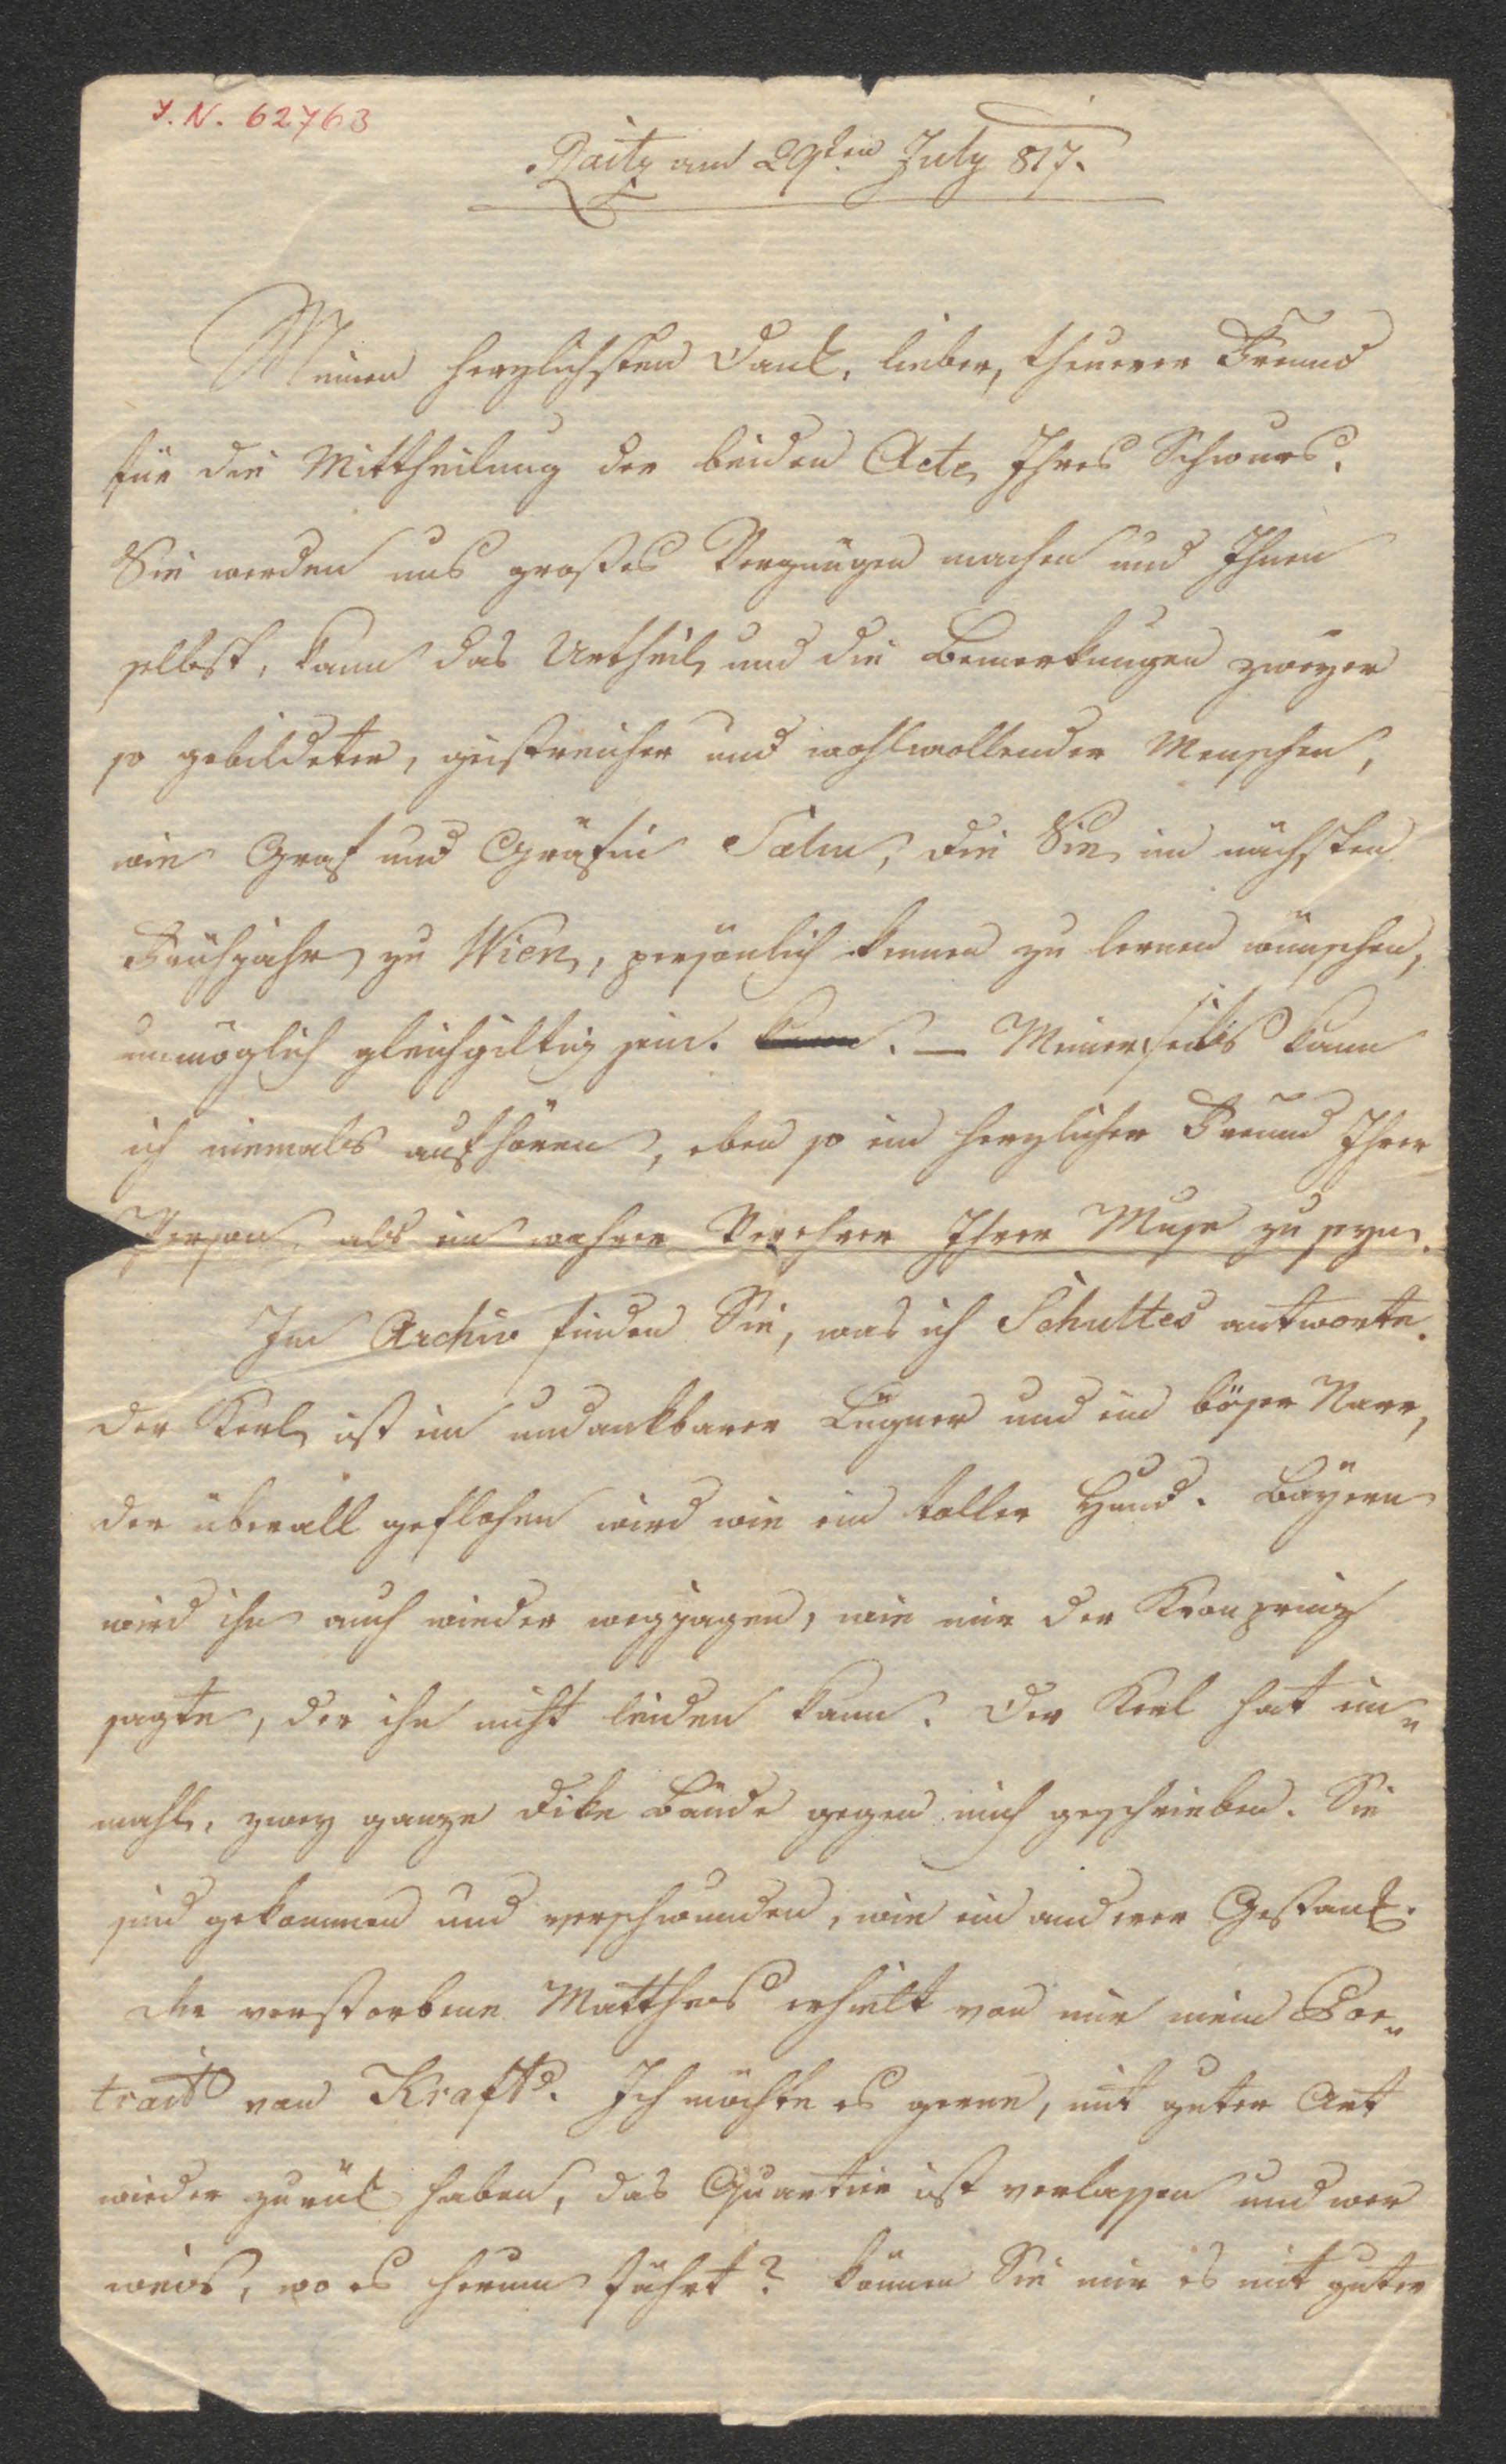 I. N. 62763
Raitz am 29ten July 817.
Meinen herzlichsten Dank, lieber, theurer Freund
für die Mittheilung der beiden Acte Ihres Schwurs.
Sie werden uns großes Vergnügen machen und Ihnen
selbst, kann das Urtheil und die Bemerkungen zweyer
so gebildeter, geistreicher und wohlwollender Menschen,
wie Graf und Gräfin Salm, die Sie im nächsten
Frühjahr zu Wien, persönlich kennen zu lernen wünschen,
unmöglich gleichgiltig sein. kann. — Meinerseits kann
ich niemals aufhören, eben so ein herzlicher Freund Ihrer
Person, als ein wahrer Verehrer Ihrer Muse zu seyn.
Im Archiv finden Sie, was ich Schultes antworte.
Der Kerl ist ein undankbarer Lügner und ein böser Narr,
der überall geflohen wird wie ein toller Hund. Bayern
wird ihn auch wieder wegjagen, wie mir der Kronprinz
sagte, der ihn nicht leiden kann. Der Kerl hat ein=
mahl, zwey ganze dike Bände gegen mich geschrieben. Sie
sind gekommen und verschwunden, wie ein anderer Gestank.
Die verstorbene Matthes erhielt von mir mein Por=
trait von Krafft. Ich möchte es gerne, mit guter Art
wieder zurük haben, das Quartier ist verlassen und wer
weis, wo es herum fährt? können Sie mir es mit guter